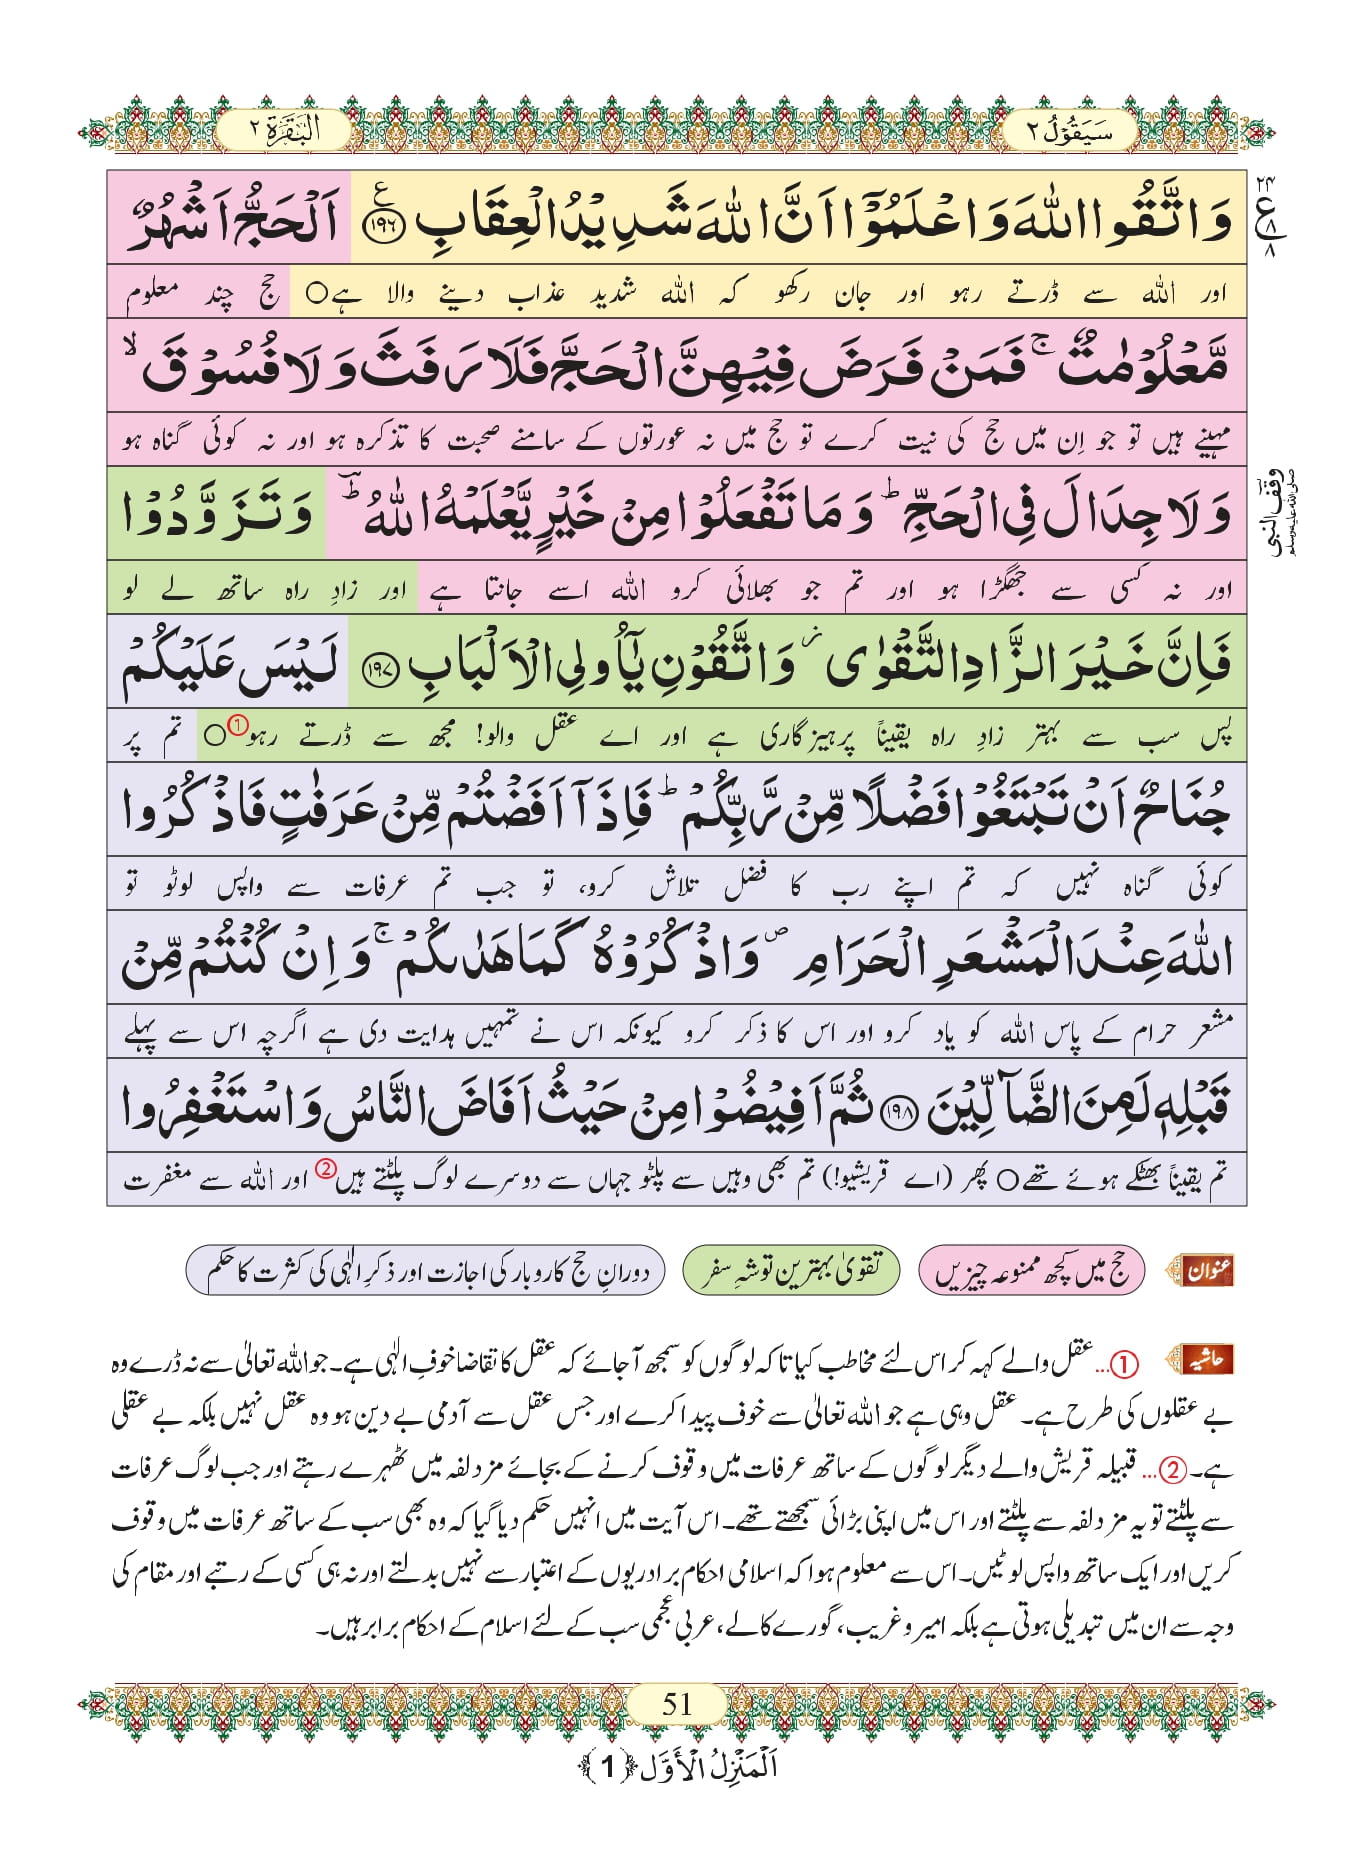 سَیَقُوْلُ ۲
الْبَقَرَة ۲
۲۴
ع
۸
۸
وَاتَّقُوا اللّٰهَ وَاعْلَمُوْۤا اَنَّ اللّٰهَ شَدِیْدُ الْعِقَابِ ﴿۱۹۶﴾ ع اَلْحَجُّ اَشْهُرٌ
اور اللہ سے ڈرتے رہو اور جان رکھو کہ اللہ شدید عذاب دینے والا ہے○ حج چند معلوم
مَّعْلُوْمٰتٌ ۚ فَمَنْ فَرَضَ فِیْهِنَّ الْحَجَّ فَلَا رَفَثَ وَلَا فُسُوْقَ ۙ
مہینے ہیں تو جو اِن میں حج کی نیت کرے تو حج میں نہ عورتوں کے سامنے صحبت کا تذکرہ ہو اور نہ کوئی گناہ ہو
وَلَا جِدَالَ فِی الْحَجِّ ؕ وَمَا تَفْعَلُوْا مِنْ خَیْرٍ یَّعْلَمْهُ اللّٰهُ ؕؔ وَتَزَوَّدُوْا
وقف النبی صلی اللہ علیہ وسلم
اور نہ کسی سے جھگڑا ہو اور تم جو بھلائی کرو اللہ اسے جانتا ہے اور زادِ راہ ساتھ لے لو
فَاِنَّ خَیْرَ الزَّادِ التَّقْوٰی ؗ وَاتَّقُوْنِ یٰۤاُولِی الْاَلْبَابِ ﴿۱۹۷﴾ لَیْسَ عَلَیْكُمْ
پس سب سے بہتر زادِ راہ یقیناً پرہیزگاری ہے اور اے عقل والو! مجھ سے ڈرتے رہو①○ تم پر
جُنَاحٌ اَنْ تَبْتَغُوْا فَضْلًا مِّنْ رَّبِّكُمْ ؕ فَاِذَاۤ اَفَضْتُمْ مِّنْ عَرَفٰتٍ فَاذْكُرُوا
کوئی گناہ نہیں کہ تم اپنے رب کا فضل تلاش کرو، تو جب تم عرفات سے واپس لوٹو تو
اللّٰهَ عِنْدَ الْمَشْعَرِ الْحَرَامِ ۪ وَاذْكُرُوْهُ كَمَا هَدٰىكُمْ ۚ وَاِنْ كُنْتُمْ مِّنْ
مشعر حرام کے پاس اللہ کو یاد کرو اور اس کا ذکر کرو کیونکہ اس نے تمہیں ہدایت دی ہے اگرچہ اس سے پہلے
قَبْلِهٖ لَمِنَ الضَّآلِّیْنَ ﴿۱۹۸﴾ ثُمَّ اَفِیْضُوْا مِنْ حَیْثُ اَفَاضَ النَّاسُ وَاسْتَغْفِرُوا
تم یقیناً بھٹکے ہوئے تھے○ پھر (اے قریشیو!) تم بھی وہیں سے پلٹو جہاں سے دوسرے لوگ پلٹتے ہیں② اور اللہ سے مغفرت
عنوان حج میں کچھ ممنوعہ چیزیں تقویٰ بہترین توشہِ سفر دورانِ حج کاروبار کی اجازت اور ذکرِ الٰہی کی کثرت کا حکم
حاشیہ ①...عقل والے کہہ کر اس لئے مخاطب کیا تاکہ لوگوں کو سمجھ آجائے کہ عقل کا تقاضا خوفِ الٰہی ہے۔ جو اللہ تعالیٰ سے نہ ڈرے وہ
بے عقلوں کی طرح ہے۔ عقل وہی ہے جو اللہ تعالیٰ سے خوف پیدا کرے اور جس عقل سے آدمی بے دین ہو وہ عقل نہیں بلکہ بے عقلی
ہے۔ ②... قبیلہ قریش والے دیگر لوگوں کے ساتھ عرفات میں وقوف کرنے کے بجائے مزدلفہ میں ٹھہرے رہتے اور جب لوگ عرفات
سے پلٹتے تو یہ مزدلفہ سے پلٹتے اور اس میں اپنی بڑائی سمجھتے تھے۔ اس آیت میں انہیں حکم دیا گیا کہ وہ بھی سب کے ساتھ عرفات میں وقوف
کریں اور ایک ساتھ واپس لوٹیں۔ اس سے معلوم ہوا کہ اسلامی احکام برادریوں کے اعتبار سے نہیں بدلتے اور نہ ہی کسی کے رتبے اور مقام کی
وجہ سے ان میں تبدیلی ہوتی ہے بلکہ امیر و غریب، گورے کالے، عربی عجمی سب کے لئے اسلام کے احکام برابر ہیں۔
51
اَلْمَنْزِلُ الْاَوَّل ﴿1﴾